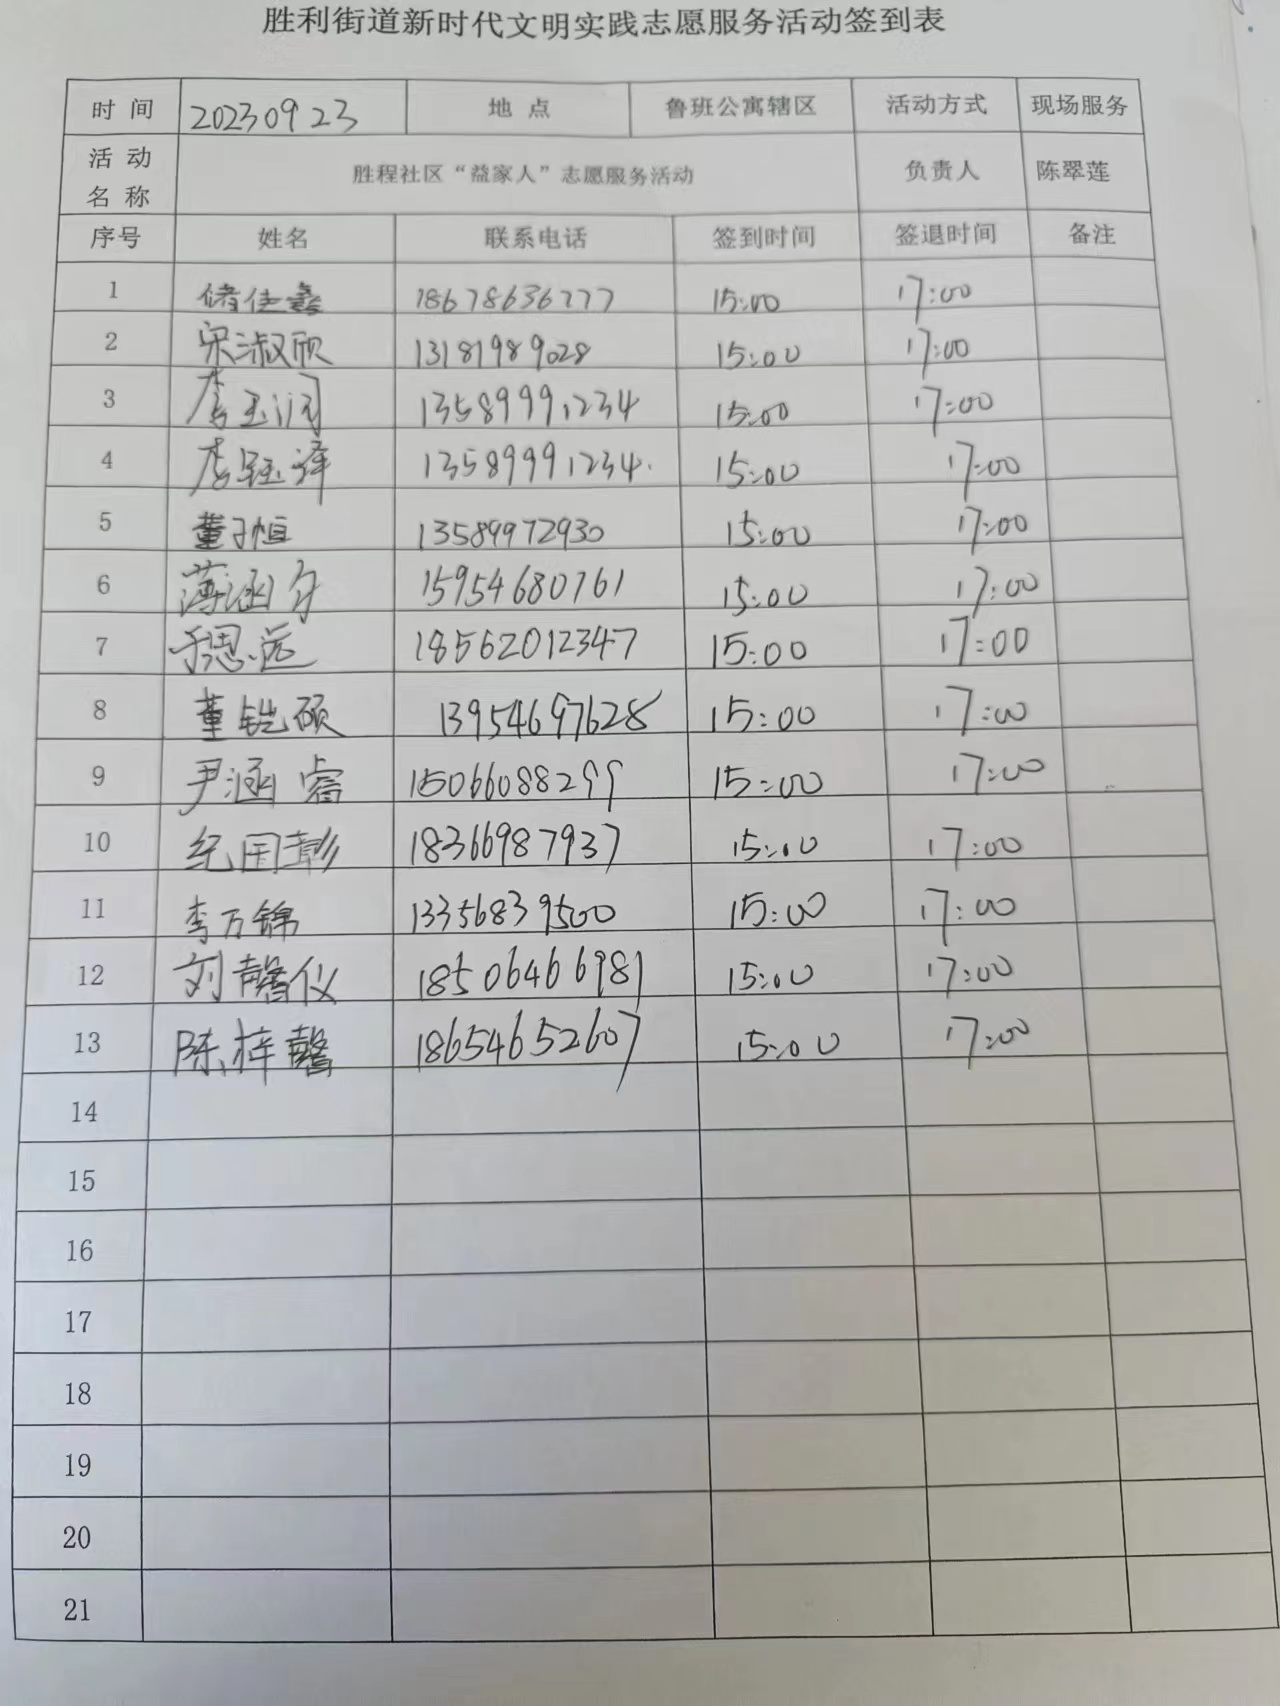 胜利街道新时代文明实践志愿服务活动签到表
时 间 20230923 地 点 鲁班公寓辖区 活动方式 现场服务
活 动 名 称 胜程社区“益家人”志愿服务活动 负责人 陈翠莲
序号 姓名 联系电话 签到时间 签退时间 备注
1 储佳鑫 18678636777 15:00 17:00
2 宋淑颀 13181989028 15:00 17:00
3 李玉润 13589991234 15:00 17:00
4 李钰泽 13589991234 15:00 17:00
5 董子恒 13589972930 15:00 17:00
6 薄涵夕 15954680761 15:00 17:00
7 于思远 18562012347 15:00 17:00
8 董铠硕 13954697628 15:00 17:00
9 尹涵睿 15066088299 15:00 17:00
10 纪国彭 18366987937 15:00 17:00
11 李万锦 13356839500 15:00 17:00
12 刘馨仪 18506466981 15:00 17:00
13 陈梓馨 18654652607 15:00 17:00
14
15
16
17
18
19
20
21